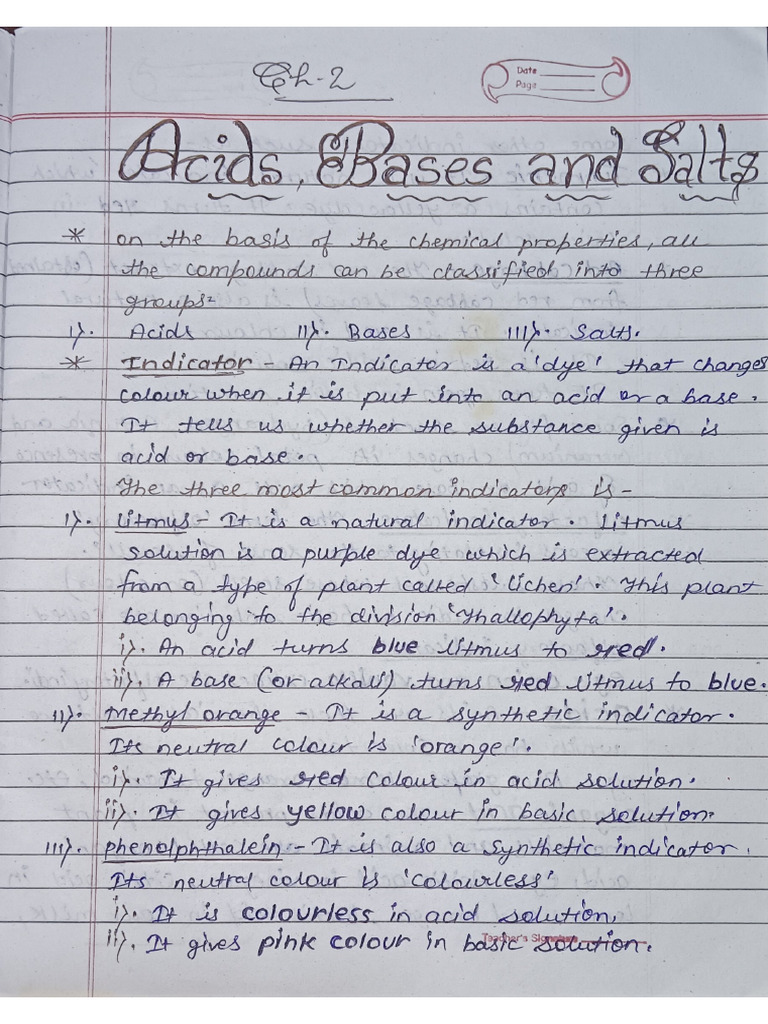 Ch-2
Date
Page
Acids, Bases and Salts
* on the basis of the chemical properties, all
the compounds can be classified into three
groups-
I). Acids II). Bases III). Salts.
* Indicator - An Indicator is a 'dye' that changes
colour when it is put into an acid or a base.
It tells us whether the substance given is
acid or base.
The three most common indicators is -
I). Litmus - It is a natural indicator. Litmus
solution is a purple dye which is extracted
from a type of plant called 'Lichen'. This plant
belonging to the division 'Thallophyta'.
i). An acid turns blue litmus to red.
ii). A base (or alkali) turns red litmus to blue.
II). Methyl orange - It is a synthetic indicator.
Its neutral colour is 'orange'.
i). It gives red colour in acid solution.
ii). It gives yellow colour in basic solution.
III). Phenolphthalein - It is also a synthetic indicator.
Its neutral colour is 'colourless'
i). It is colourless in acid solution.
ii). It gives pink colour in basic solution.
Teacher's Signature